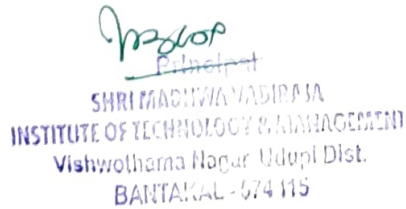 Principal
SHRI MADHWA VADIRAJA
INSTITUTE OF TECHNOLOGY & MANAGEMENT
Vishwothama Nagar Udupi Dist.
BANTAKAL - 574 115